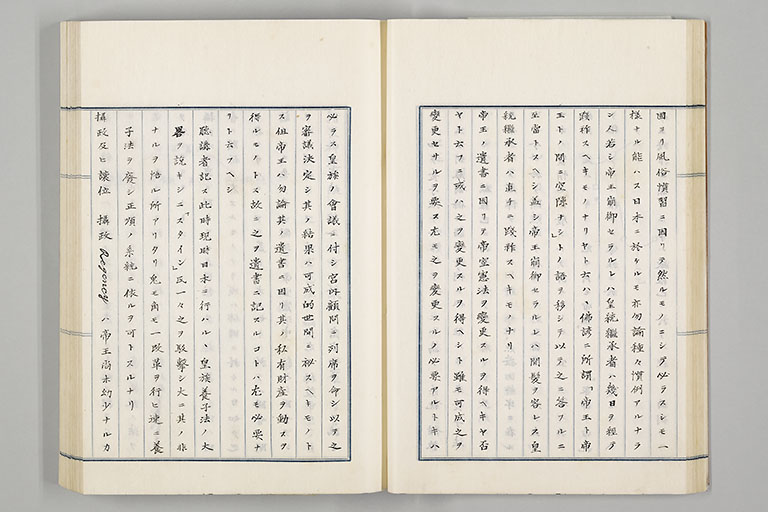 固ヨリ風俗慣習ニ因リテ然ルモノニシテ必ラスシモ一
様ナル能ハス日本ニ於ケルモ亦勿論種々慣例アルナラ
ン人若シ帝王崩御セラルレハ皇統繼承者ハ幾日ヲ經テ
踐祚スヘキモノナリヤト云ハヽ佛諺ニ所謂「帝王ト帝
王トノ間ニ空隙ナシ」トノ語ヲ移シテ以テ之ニ答フルニ
至當トスヘシ蓋シ帝王崩御セラルレハ間髮ヲ容レス皇
統繼承者ハ直チニ踐祚スヘキモノナリ
帝王ノ遺書ニ因リテ帝室憲法ヲ變更スルヲ得ヘキヤ否
ヤト云フニ或ハ之ヲ變更スルヲ得ヘシト雖モ可成之ヲ
變更セサルヲ要ス尤モ之ヲ變更スルノ必要アルトキハ
必ラス皇族ノ會議ニ付シ宮內顧問ニ列席ヲ命シ以テ之
ヲ審議決定シ其ノ結果ハ可成的世間ニ祕スヘキモノト
ス但帝王ハ勿論其ノ遺書ニ因リ其ノ私有財産ヲ動スヲ
得ルモノトス故ニ之ヲ遺書ニ記スルコトハ尤モ必要ナ
リト云フヘシ
聽講者記ス此時現時日本ニ行ハルヽ皇族養子法ノ大
畧ヲ說キシニ「スタイン」氏一々之ヲ駁擊シ大ニ其ノ非
ナルヲ悟ル所アリタリ兎モ角モ一改革ヲ行ヒ速ニ養
子法ヲ廢シ正項ノ系統ニ依ルヲ可トスルナリ
攝政及ヒ讓位 攝政 Regency ハ帝王尚未幼少ナルカ